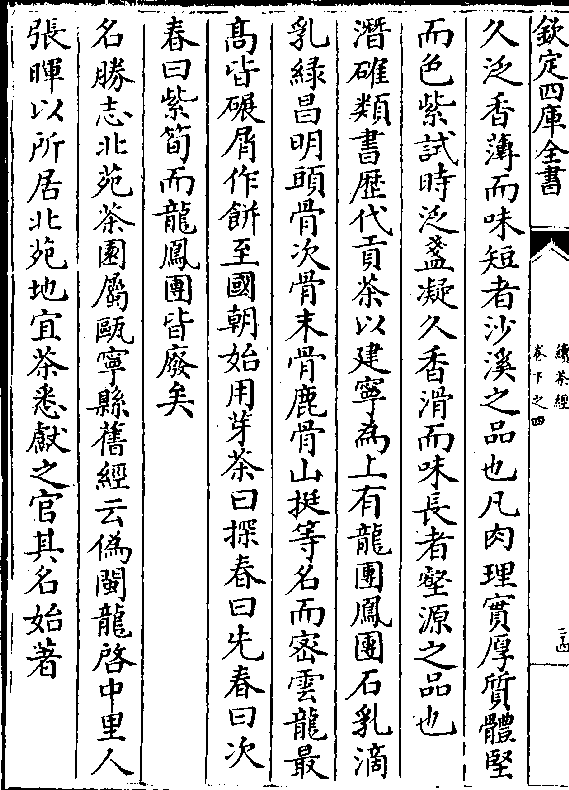 欽定四庫全書
續茶經
卷下之四
二十四
久泛香薄而味短者沙溪之品也凡肉理實厚質體堅
而色紫試時泛盞凝久香滑而味長者壑源之品也
潛確類書歷代貢茶以建寧為上有龍團鳳團石乳滴
乳綠昌明頭骨次骨末骨鹿骨山挺等名而密雲龍最
髙皆碾屑作餅至國朝始用芽茶曰探春曰先春曰次
春曰紫筍而龍鳳團皆廢矣
名勝志北苑茶園屬甌寧縣舊經云偽閩龍啓中里人
張暉以所居北苑地宜茶悉獻之官其名始著